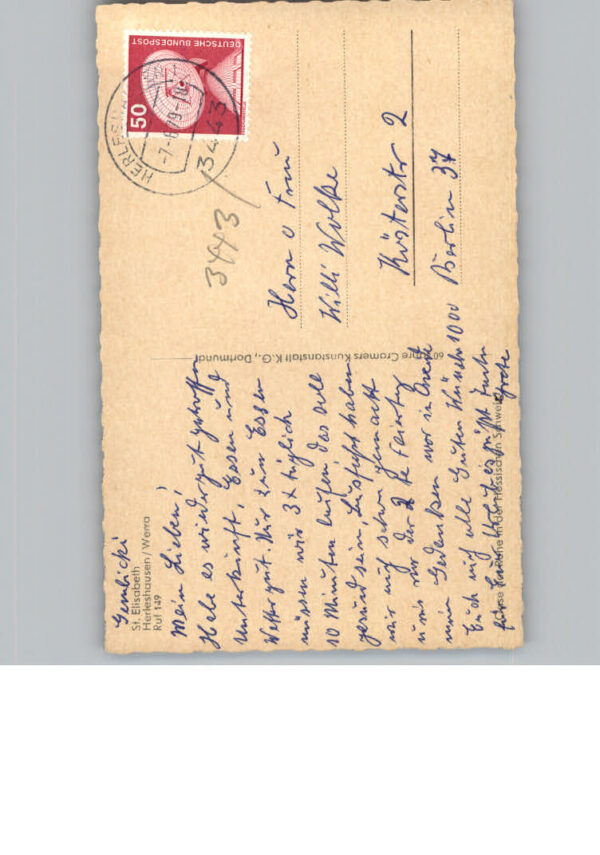 Gembicki
St. Elisabeth
Herleshausen/Werra
Ruf 149
Mein Lieben!
Habe es wieder gut getroffen
Unterkunft, Essen und
Wetter gut. Nur zum Essen
müssen wir 3x täglich
10 Minuten laufen das soll
gesund sein, Lustfahrt haben
wir auch schon gemacht
u. wie der 2te Feiertag
Gedenken war in
mein alle guten Wünsche
Euch auf es grüßt
für Grete
Oase der Ruhe in der Hessischen Schweiz
60 Jahre Cramers Kunstanstalt K.G., Dortmund
DEUTSCHE BUNDESPOST
50
HERLESHAUSEN
-7.-6.79-
3443
3443
Herrn u Frau
Willi Wolke
Küsterstr 2
1000 Berlin 37